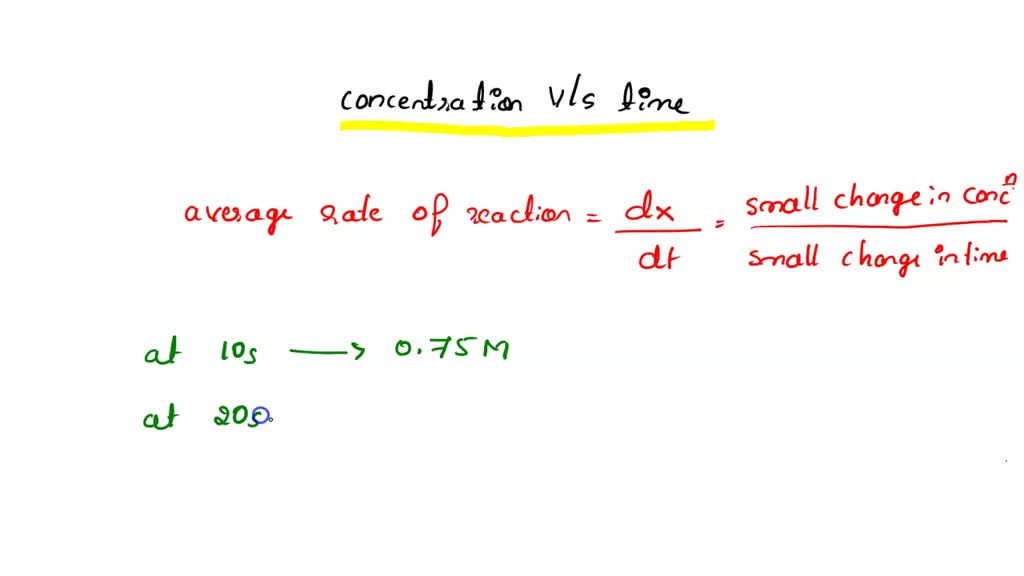 concentration v/s time
average rate of reaction = dx / dt = small change in concⁿ / small change in time
at 10s → 0.75 M
at 20s